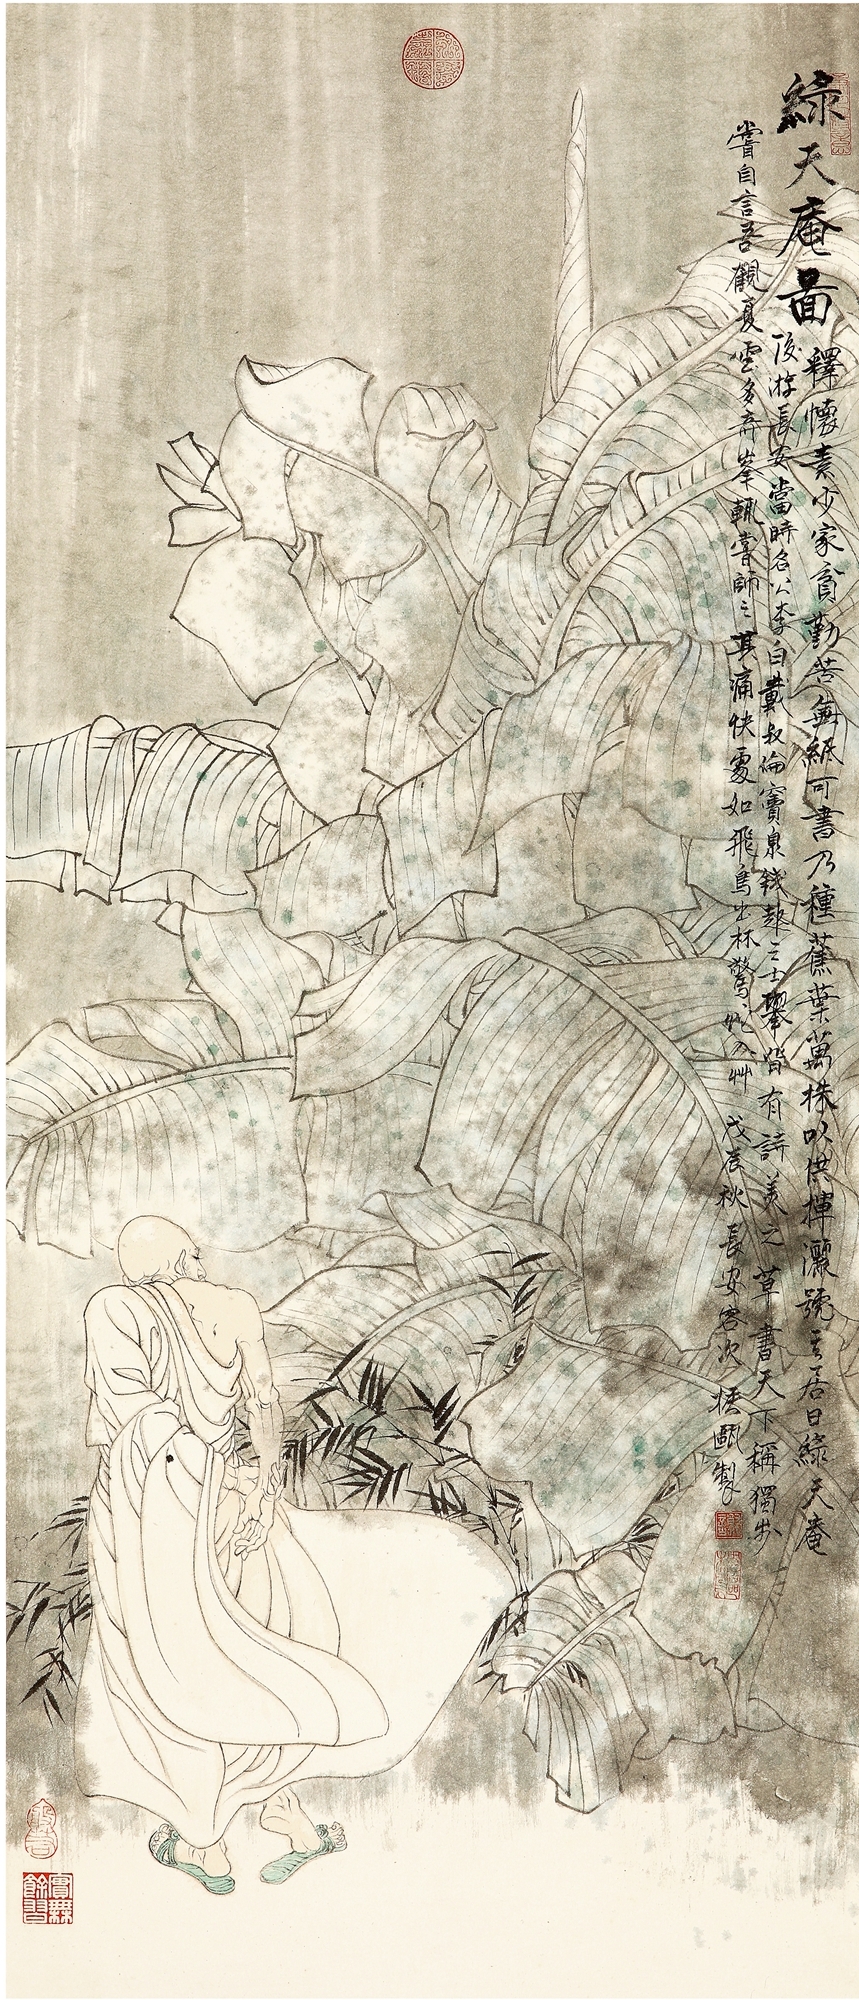 綠天庵啚
釋懷素少家貧勤苦無紙可書乃種蕉葉萬株以供揮灑號其居曰綠天庵
後游長安當時名公李白戴叔倫竇泉錢起之士舉皆有詩美之草書天下稱獨步
嘗自言吾觀夏雲多奇峯輒嘗師之其痛快處如飛鳥出林驚蛇入艸 戊辰秋 長安客次 製